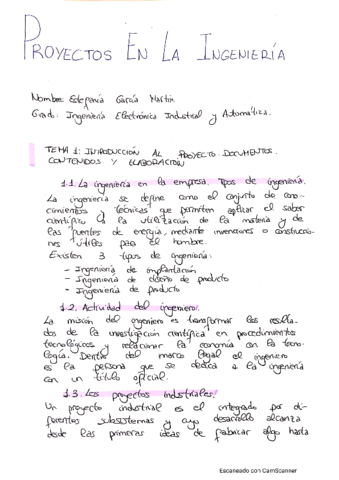 PROYECTOS EN LA INGENIERÍA
Nombre: Estefanía García Martín
Grado: Ingeniería Electrónica Industrial y Automática.
TEMA 1: INTRODUCCIÓN AL PROYECTO. DOCUMENTOS.
CONTENIDOS Y ELABORACIÓN
1.1. La ingeniería en la empresa. Tipos de ingeniería.
La ingeniería se define como el conjunto de cono-
cimientos y técnicas que permiten aplicar el saber
científico a la utilización de la materia y de
las fuentes de energía, mediante invenciones o construccio-
nes útiles para el hombre.
Existen 3 tipos de ingeniería:
- Ingeniería de implantación
- Ingeniería de diseño de producto
- Ingeniería de producto
1.2. Actividad del ingeniero.
La misión del ingeniero es transformar los resulta-
dos de la investigación científica en procedimientos
tecnológicos y relacionar la economía con la tecno-
logía. Dentro del marco legal el ingeniero
es la persona que se dedica a la ingeniería
con un título oficial.
1.3. Los proyectos industriales.
Un proyecto industrial es el integrado por di-
ferentes subsistemas y cuyo desarrollo alcanza
desde las primeras ideas de fabricar algo hasta
Escaneado con CamScanner